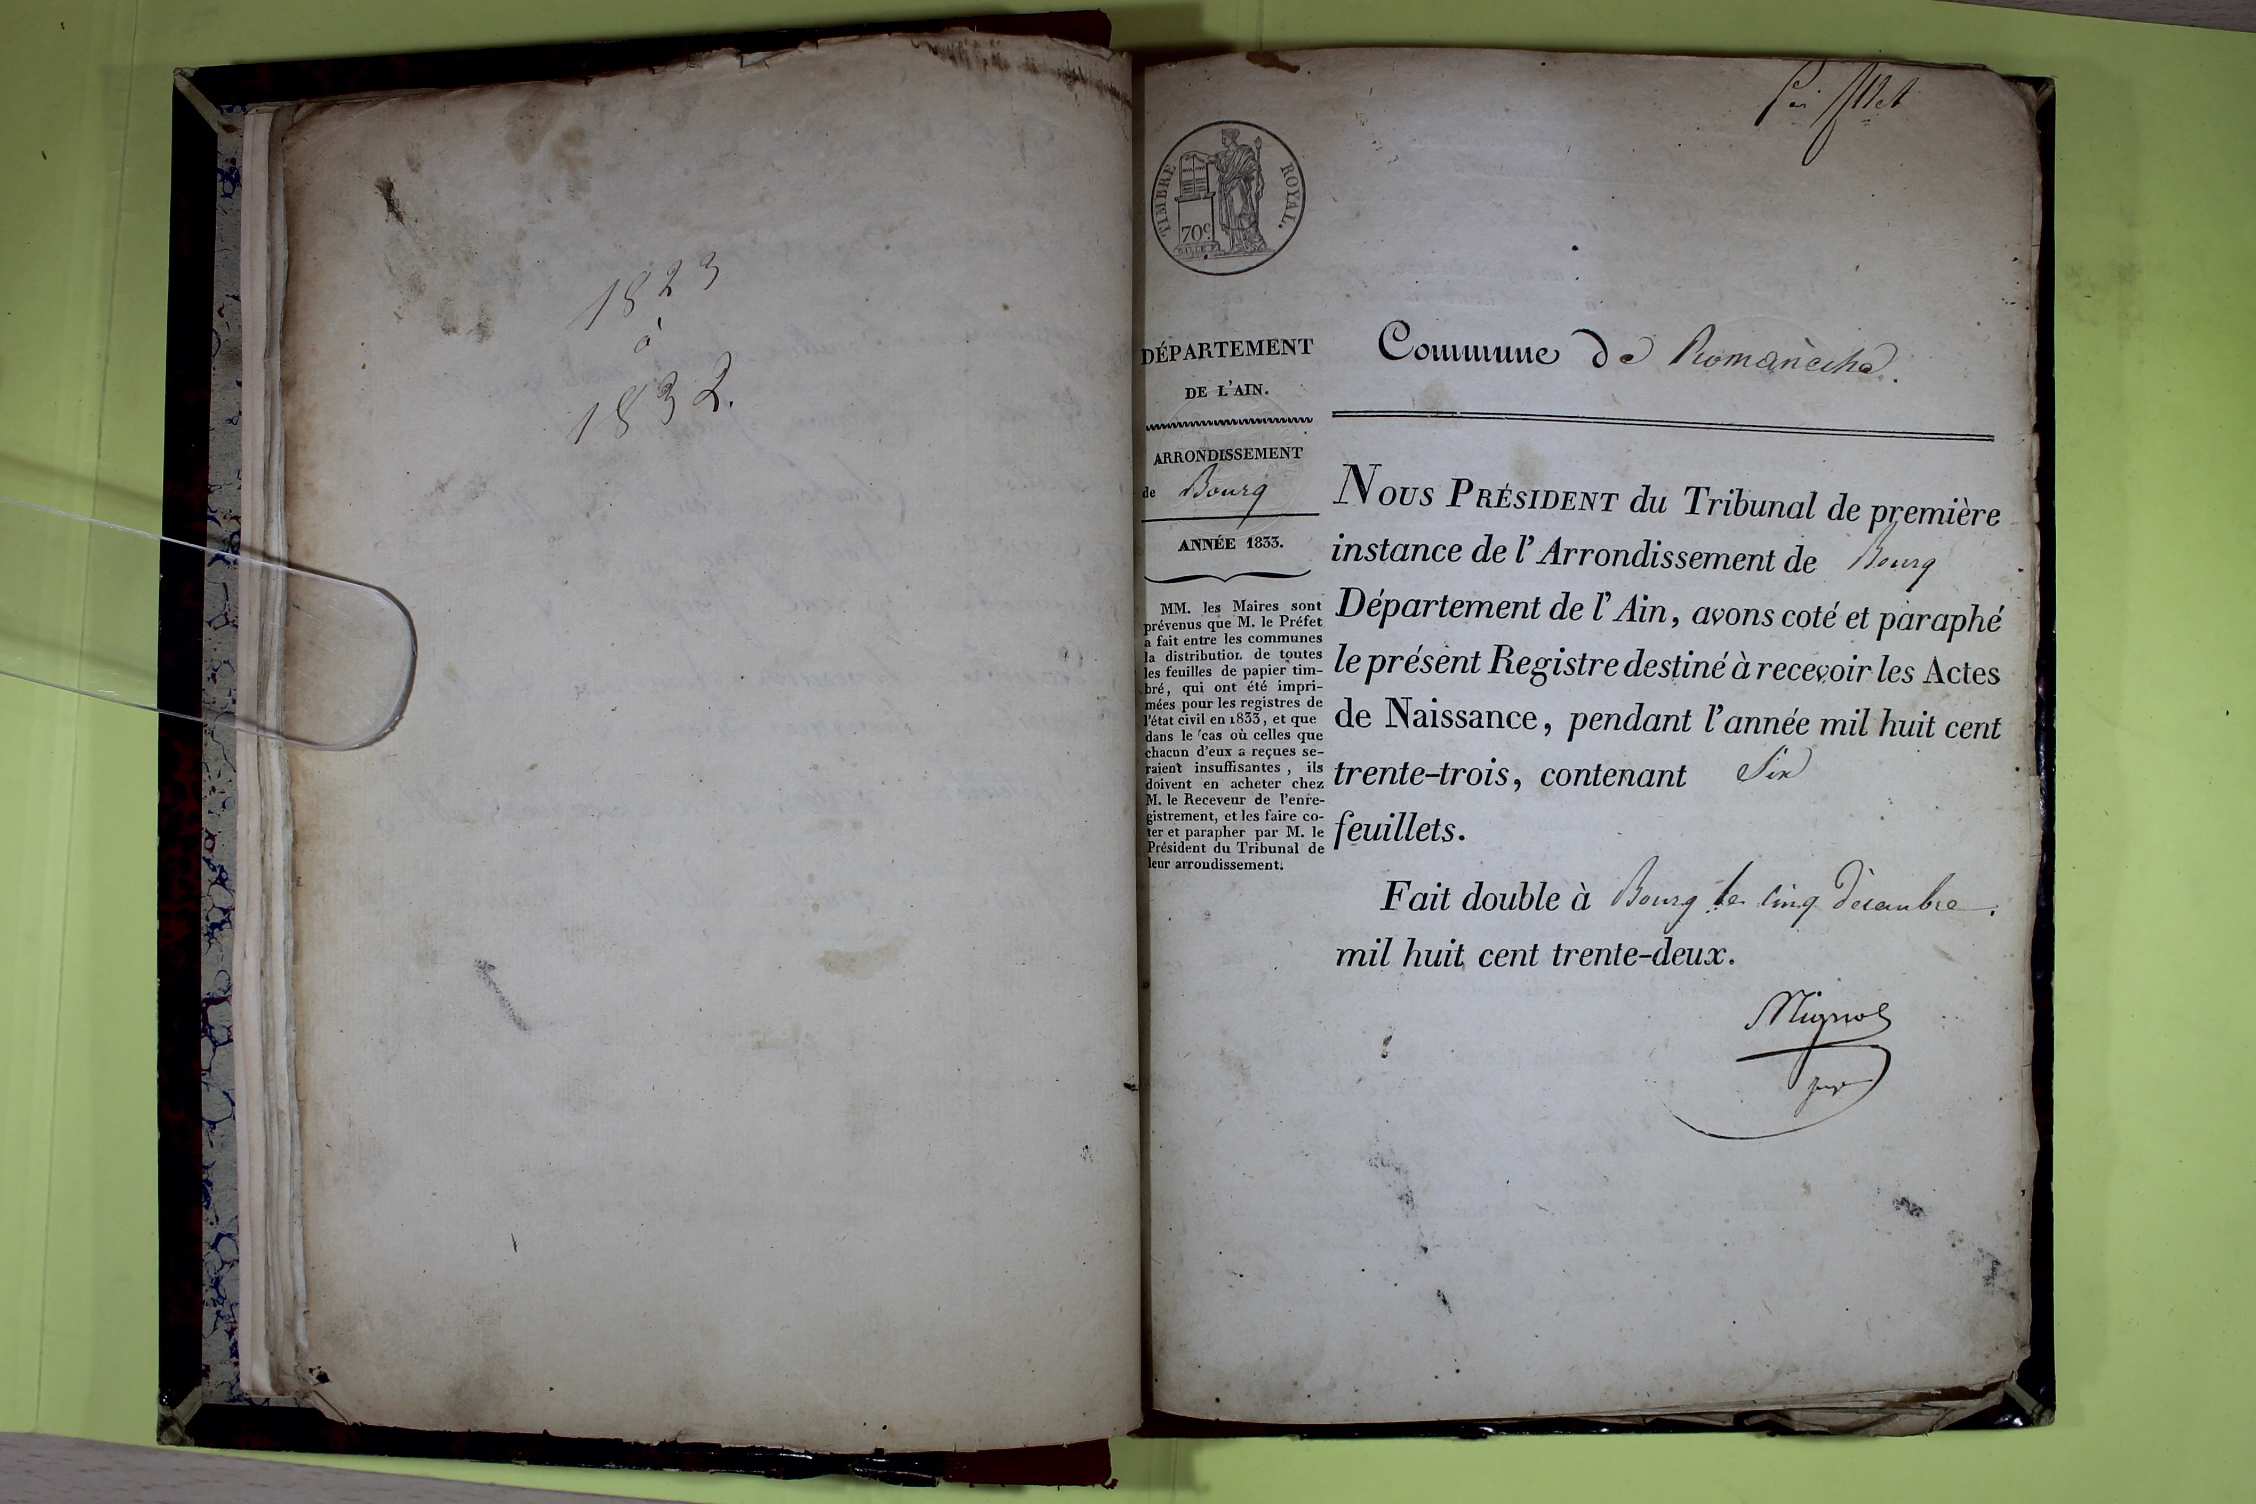 1823
à
1832.
TIMBRE ROYAL.
70c
DÉPARTEMENT
DE L'AIN.
ARRONDISSEMENT
de Bourg
ANNÉE 1833.
MM. les Maires sont
prévenus que M. le Préfet
a fait entre les communes
la distribution de toutes
les feuilles de papier tim-
bré, qui ont été impri-
mées pour les registres de
l'état civil en 1833, et que
dans le cas où celles que
chacun d'eux a reçues se-
raient insuffisantes, ils
doivent en acheter chez
M. le Receveur de l'enre-
gistrement, et les faire co-
ter et parapher par M. le
Président du Tribunal de
leur arrondissement.
Commune de Romanèche.
NOUS PRÉSIDENT du Tribunal de première
instance de l'Arrondissement de Bourg
Département de l'Ain, avons coté et paraphé
le présent Registre destiné à recevoir les Actes
de Naissance, pendant l'année mil huit cent
trente-trois, contenant Six
feuillets.
Fait double à Bourg le cinq décembre.
mil huit cent trente-deux.
juge